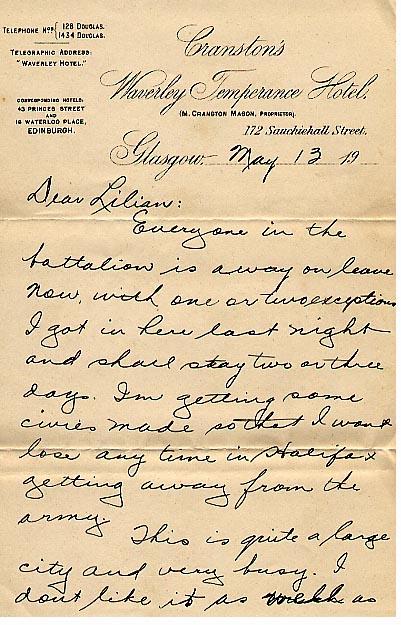 TELEPHONE Nos { 128 DOUGLAS.
1434 DOUGLAS.
TELEGRAPHIC ADDRESS:
"WAVERLEY HOTEL."
CORRESPONDING HOTELS:
43 PRINCES STREET
AND
18 WATERLOO PLACE,
EDINBURGH.
Cranston's
Waverley Temperance Hotel.
(M. CRANSTON MASON, PROPRIETOR).
172 Sauchiehall Street.
Glasgow. May 13 19
Dear Lilian:
Everyone in the
battalion is away on leave
now, with one or two exceptions
I got in here last night
and shall stay two or three
days. I'm getting some
civies made so that I wont
lose any time in Halifax
getting away from the
army.
This is quite a large
city and very busy. I
dont like it as well as